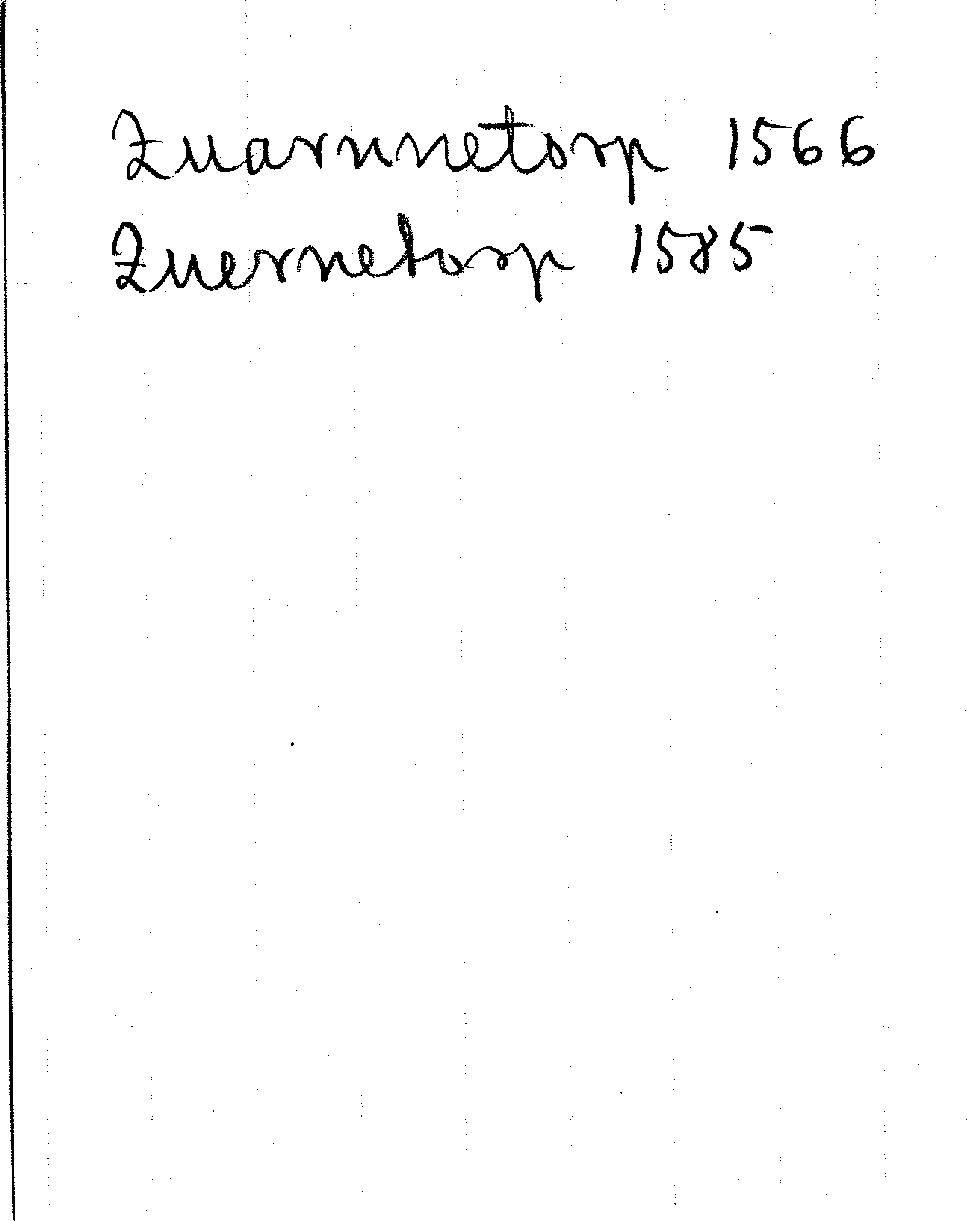 Quarnnetorp 1566
Quernetorp 1585